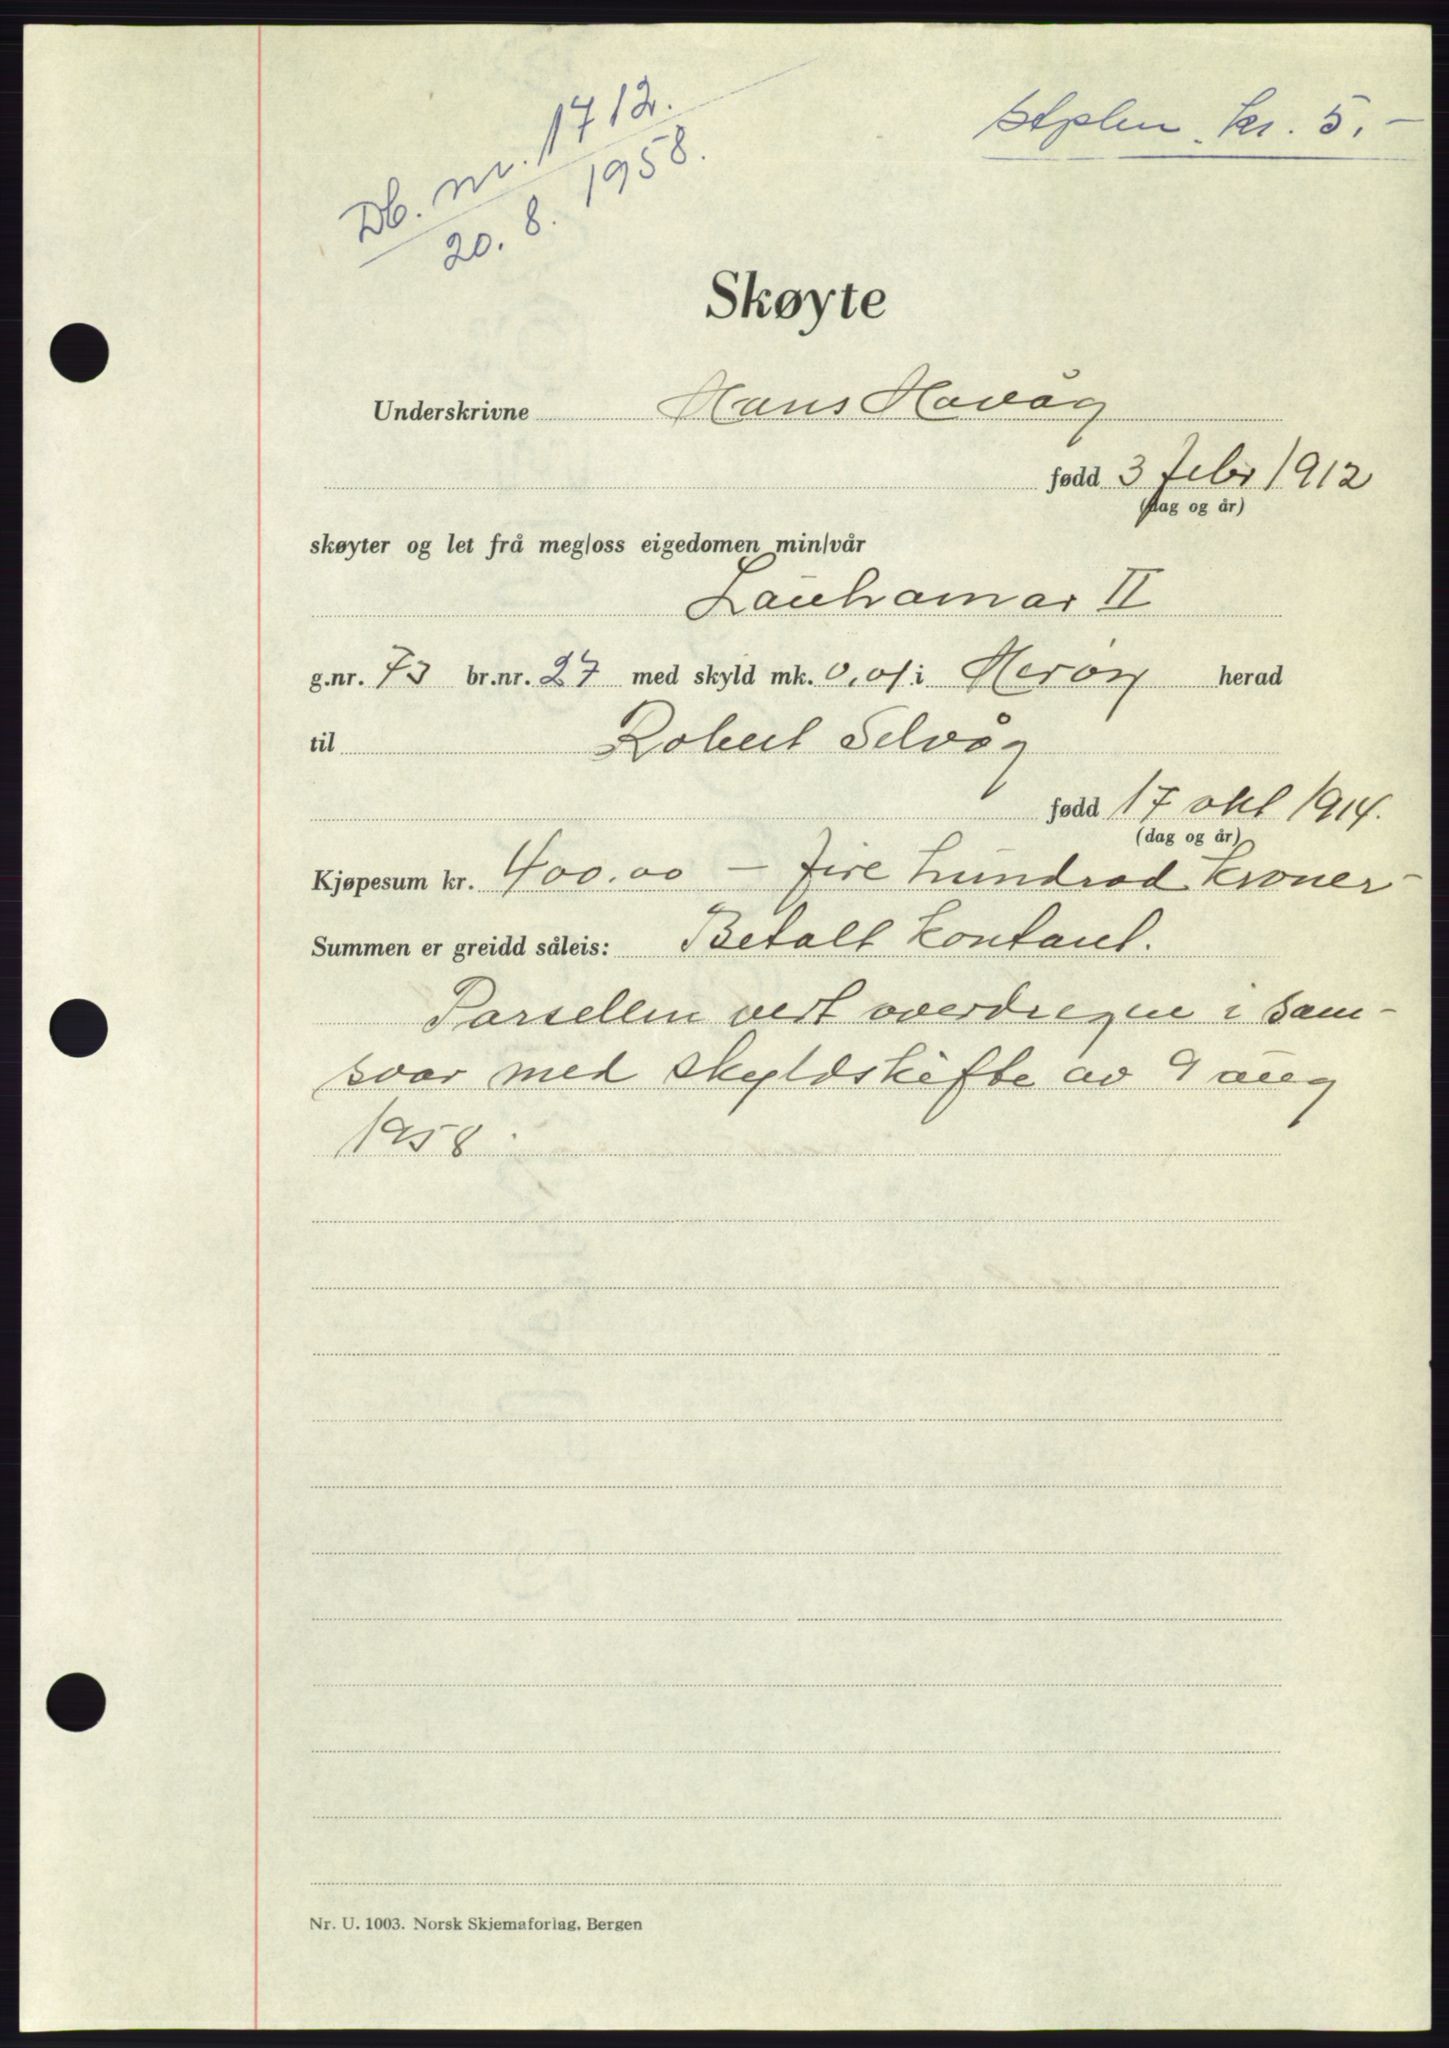 Db. nr. 1712.
20. 8. 1958.
stplm. kr. 5.-
Skøyte
Underskrivne Hans Havåg
fødd 3 febr 1912
(dag og år)
skøyter og let frå meg/oss eigedomen min/vår
Lauhamar II
g.nr. 73 br.nr. 27 med skyld mk. 0,01 i Herøy herad
til Robert Selvåg
fødd 17 okt 1914.
(dag og år)
Kjøpesum kr. 400.00 - fire hundrad kroner -
Summen er greidd såleis: Betalt kontant.
Parsellen vert overdregen i sam-
svar med skyldskifte av 9 aug
1958.
Nr. U. 1003. Norsk Skjemaforlag, Bergen